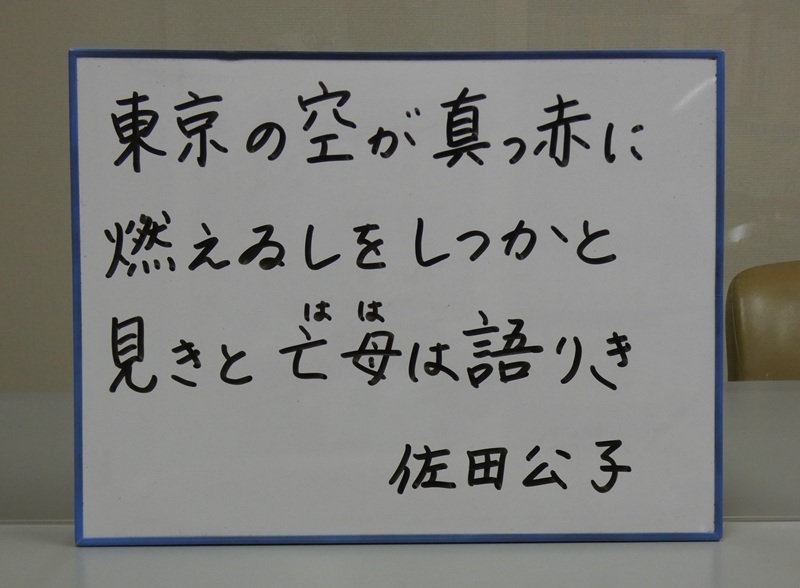 東京の空が真っ赤に
燃えゐしをしつかと
見きと亡母は語りき
はは
佐田公子